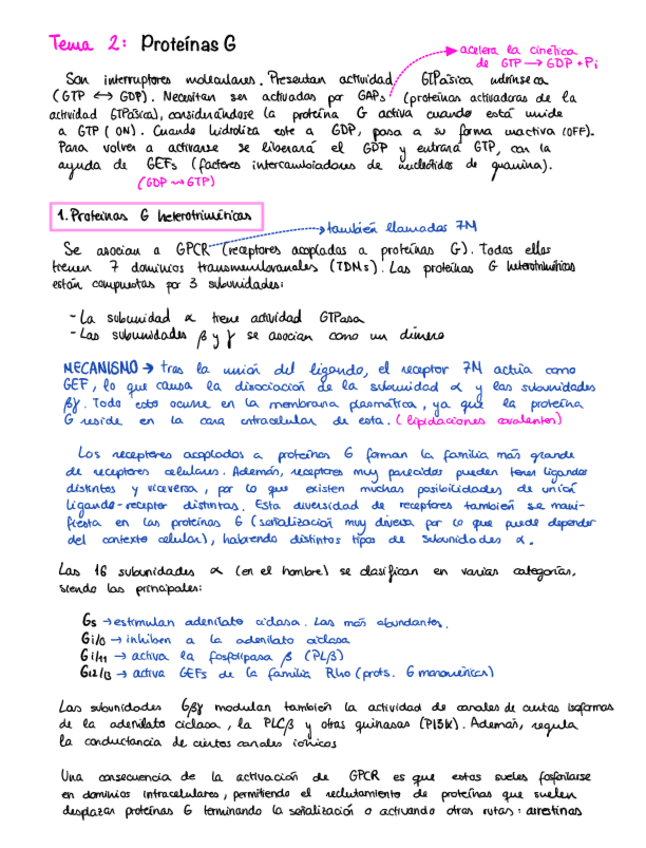 Tema 2: Proteínas G
acelera la cinética
de GTP → GDP + Pi
Son interruptores moleculares. Presentan actividad GTPásica intrínseca
(GTP ↔ GDP). Necesitan ser activadas por GAPs (proteínas activadoras de la
actividad GTPásica), considerándose la proteína G activa cuando está unida
a GTP (ON). Cuando hidroliza este a GDP, pasa a su forma inactiva (OFF).
Para volver a activarse se liberará el GDP y entrará GTP, con la
ayuda de GEFs (factores intercambiadores de nucleótidos de guanina).
(GDP ⇝ GTP)
1. Proteínas G heterotriméricas
también llamadas 7M
Se asocian a GPCR (receptores acoplados a proteínas G). Todas ellas
tienen 7 dominios transmembranales (TDMs). Las proteínas G heterotriméricas
están compuestas por 3 subunidades:
- La subunidad α tiene actividad GTPasa
- Las subunidades β y γ se asocian como un dímero
MECANISMO → tras la unión del ligando, el receptor 7M actúa como
GEF, lo que causa la disociación de la subunidad α y las subunidades
βγ. Todo esto ocurre en la membrana plasmática, ya que la proteína
G reside en la cara intracelular de esta. (lipidaciones covalentes)
Los receptores acoplados a proteínas G forman la familia más grande
de receptores celulares. Además, receptores muy parecidos pueden tener ligandos
distintos y viceversa, por lo que existen muchas posibilidades de unión
ligando-receptor distintas. Esta diversidad de receptores también se mani-
fiesta en las proteínas G (señalización muy diversa por lo que puede depender
del contexto celular), habiendo distintos tipos de subunidades α.
Las 16 subunidades α (en el hombre) se clasifican en varias categorías,
siendo las principales:
Gs → estimulan adenilato ciclasa. Las más abundantes.
Gi/o → inhiben a la adenilato ciclasa
Gi/11 → activa la fosfolipasa β (PLβ)
G12/13 → activa GEFs de la familia Rho (prots. G monoméricas)
Las subunidades Gβγ modulan también la actividad de canales de ciertas isoformas
de la adenilato ciclasa, la PLCβ y otras quinasas (PI3K). Además, regula
la conductancia de ciertos canales iónicos
Una consecuencia de la activación de GPCR es que estas sueles fosforilarse
en dominios intracelulares, permitiendo el reclutamiento de proteínas que suelen
desplazar proteínas G terminando la señalización o activando otras rutas: arrestinas